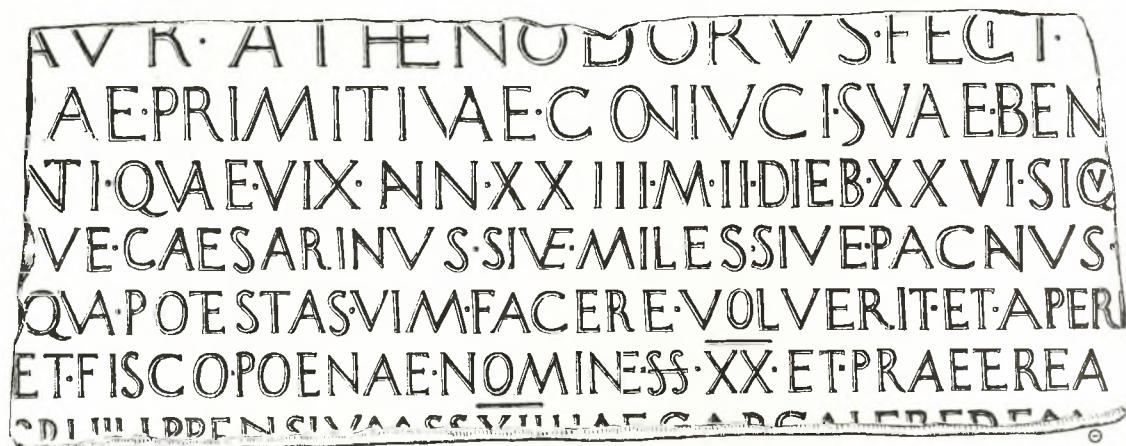 AVR· ATHENODORVS·FECIT·
AE·PRIMITIVAE·CONIVCI·SVAE·BEN
NTI·QVAE·VIX·ANN·XXIII·M·II·DIEB·XXVI·SIQV
VE·CAESARINVS·SIVE·MILESSIVE·PACNVS·
QVA·POTESTAS·VIM·FACERE·VOLVERIT·ET·APERI
ET·FISCO·POENAE·NOMINE·SS·XX·ET·PRAEEREA